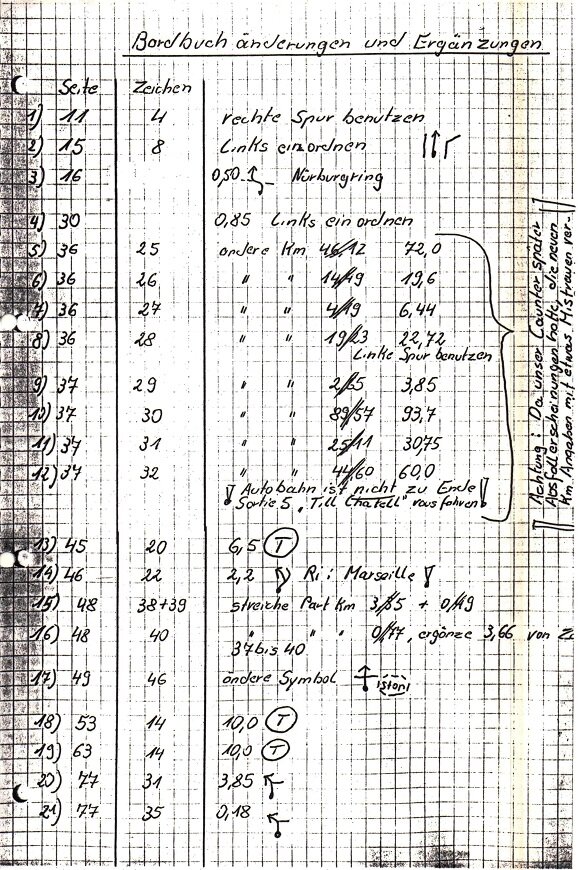 Bordbuch änderungen und Ergänzungen
Seite Zeichen
1) 11 4 rechte Spur benutzen
2) 15 8 Links einordnen
3) 16 0,50 Nürburgring
4) 30 0,85 Links einordnen
5) 36 25 andere Km 46,12 72,0
6) 36 26 " " 14,19 19,6
7) 36 27 " " 4,19 6,44
8) 36 28 " " 19,23 22,72
Linke Spur benutzen
9) 37 29 " " 2,65 3,85
10) 37 30 " " 89,57 93,7
11) 37 31 " " 25,11 30,75
12) 37 32 " " 44,60 60,0
! Autobahn ist nicht zu Ende!
Sortie 5 "Till Chatell" rausfahren!
13) 45 20 6,5 T
14) 46 22 2,2 Ri: Marseille !
15) 48 38+39 streiche Part Km 3,85 + 0,19
16) 48 40 " " " 0,17, ergänze 3,66 von
37 bis 40
17) 49 46 ändere Symbol
18) 53 14 10,0 T
19) 63 14 10,0 T
20) 77 31 3,85
21) 77 35 0,18
Achtung: Da unser Counter später
Ausfallerscheinungen hatte, die neuen
Km Angaben mit etwas Mistrauen ver-